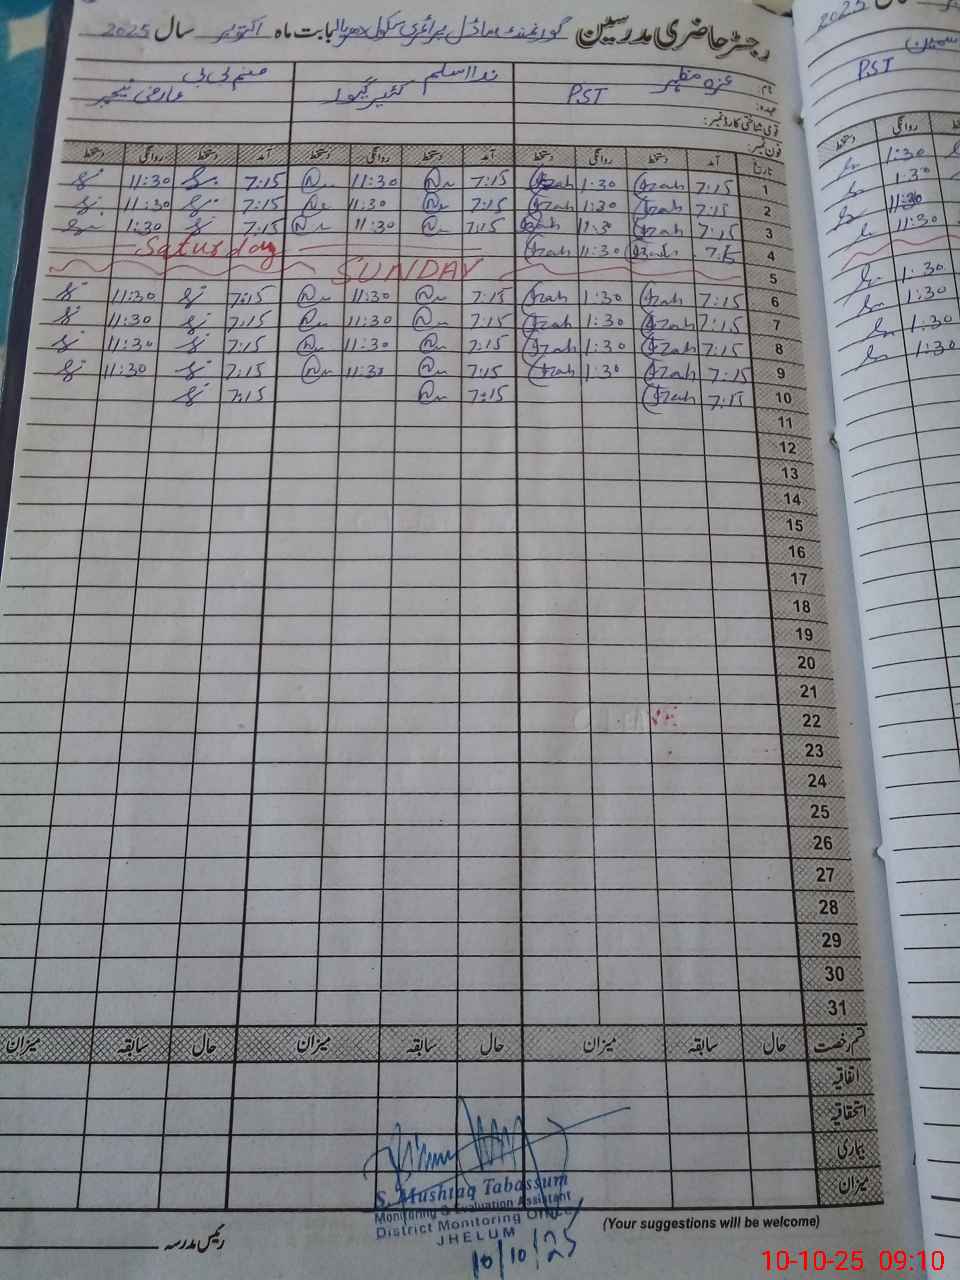 رجسٹر حاضری مدرسین گورنمنٹ ماڈل پرائمری سکول بابت ماہ اکتوبر سال 2025
نام: عزہ مظہر ندا اسلم
عہدہ: PST عارضی ٹیچر
قومی شناختی کارڈ نمبر:
فون نمبر:
تاریخ آمد دستخط روانگی دستخط آمد دستخط روانگی دستخط آمد دستخط روانگی دستخط
1 7:15 Izah 1:30 Izah 7:15 11:30 7:15 11:30
2 7:15 Izah 1:30 Izah 7:15 11:30 7:15 11:30
3 7:15 Izah 1:30 Izah 7:15 11:30 7:15 1:30
4 7:15 Izah 11:30 Izah Saturday
5 SUNDAY
6 7:15 Izah 1:30 Izah 7:15 11:30 7:15 11:30
7 7:15 Izah 1:30 Izah 7:15 11:30 7:15 11:30
8 7:15 Izah 1:30 Izah 7:15 11:30 7:15 11:30
9 7:15 Izah 1:30 Izah 7:15 11:30 7:15 11:30
10 7:15 Izah 7:15 7:15
11
12
13
14
15
16
17
18
19
20
21
22
23
24
25
26
27
28
29
30
31
قسم رخصت حال سابقہ میزان حال سابقہ میزان حال سابقہ میزان
اتفاقیہ
استحقاقیہ
بیماری
میزان
S. Mushtaq Tabassum
Monitoring & Evaluation Assistant
District Monitoring Office
JHELUM
10/10/25
(Your suggestions will be welcome)
رئیس مدرسہ
2025
PST
روانگی دستخط
1:30
1:30
11:30
11:30
1:30
1:30
1:30
1:30
10-10-25 09:10